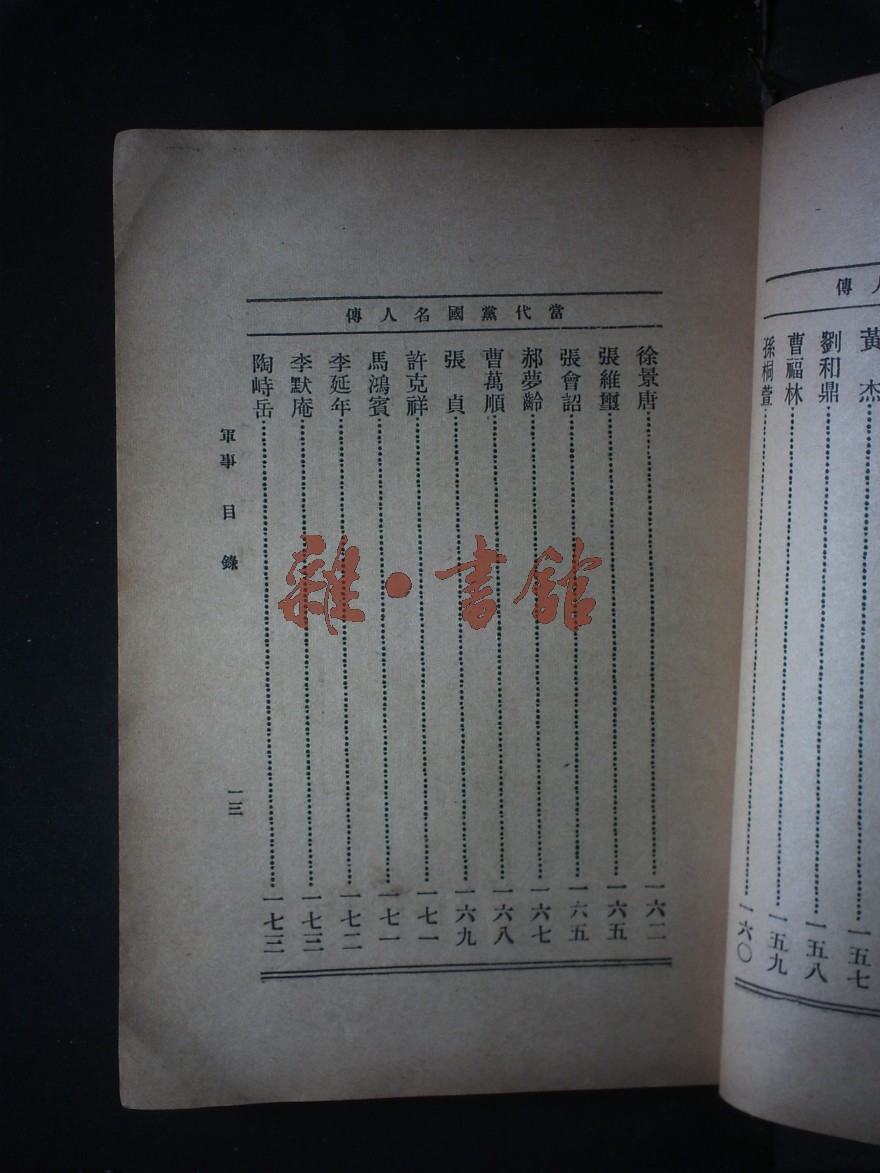 當代黨國名人傳
徐景唐 一六二
張維璽 一六五
張會詔 一六五
郝夢齡 一六七
曹萬順 一六八
張貞 一六九
許克祥 一七一
馬鴻賓 一七一
李延年 一七二
李默庵 一七三
陶峙岳 一七三
軍事 目錄
一三
人傳
黃杰 一五七
劉和鼎 一五八
曹福林 一五九
孫桐萱 一六〇
雜·書館